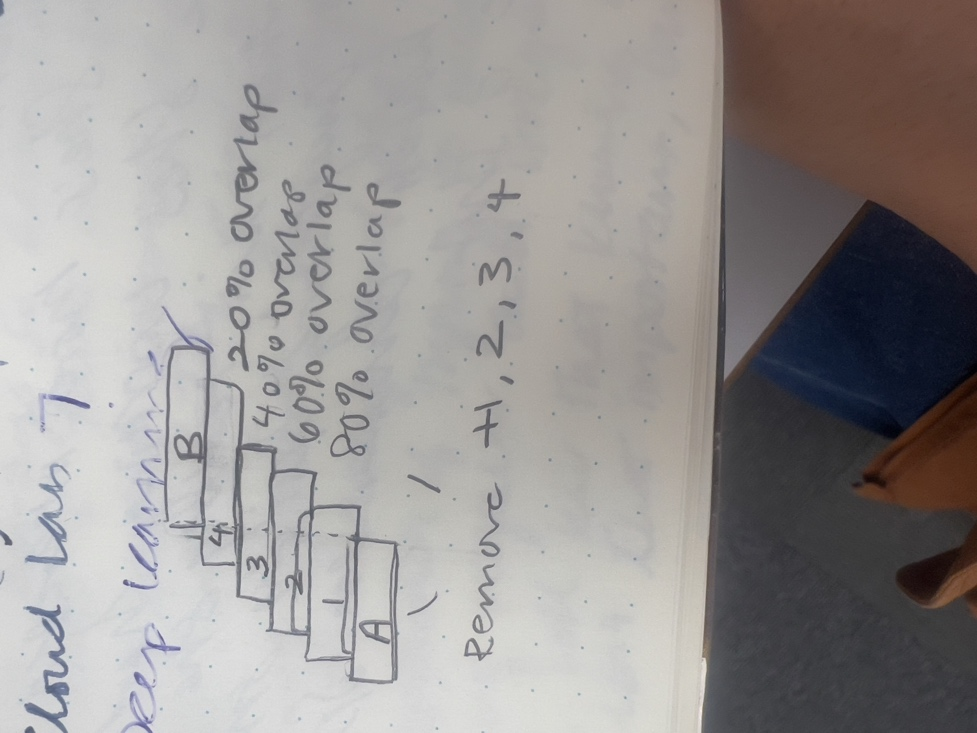 Cloud Lab 7
Deep learning
B
20% overlap
4
40% overlap
3
60% overlap
2
80% overlap
1
A
Remove 1, 2, 3, 4